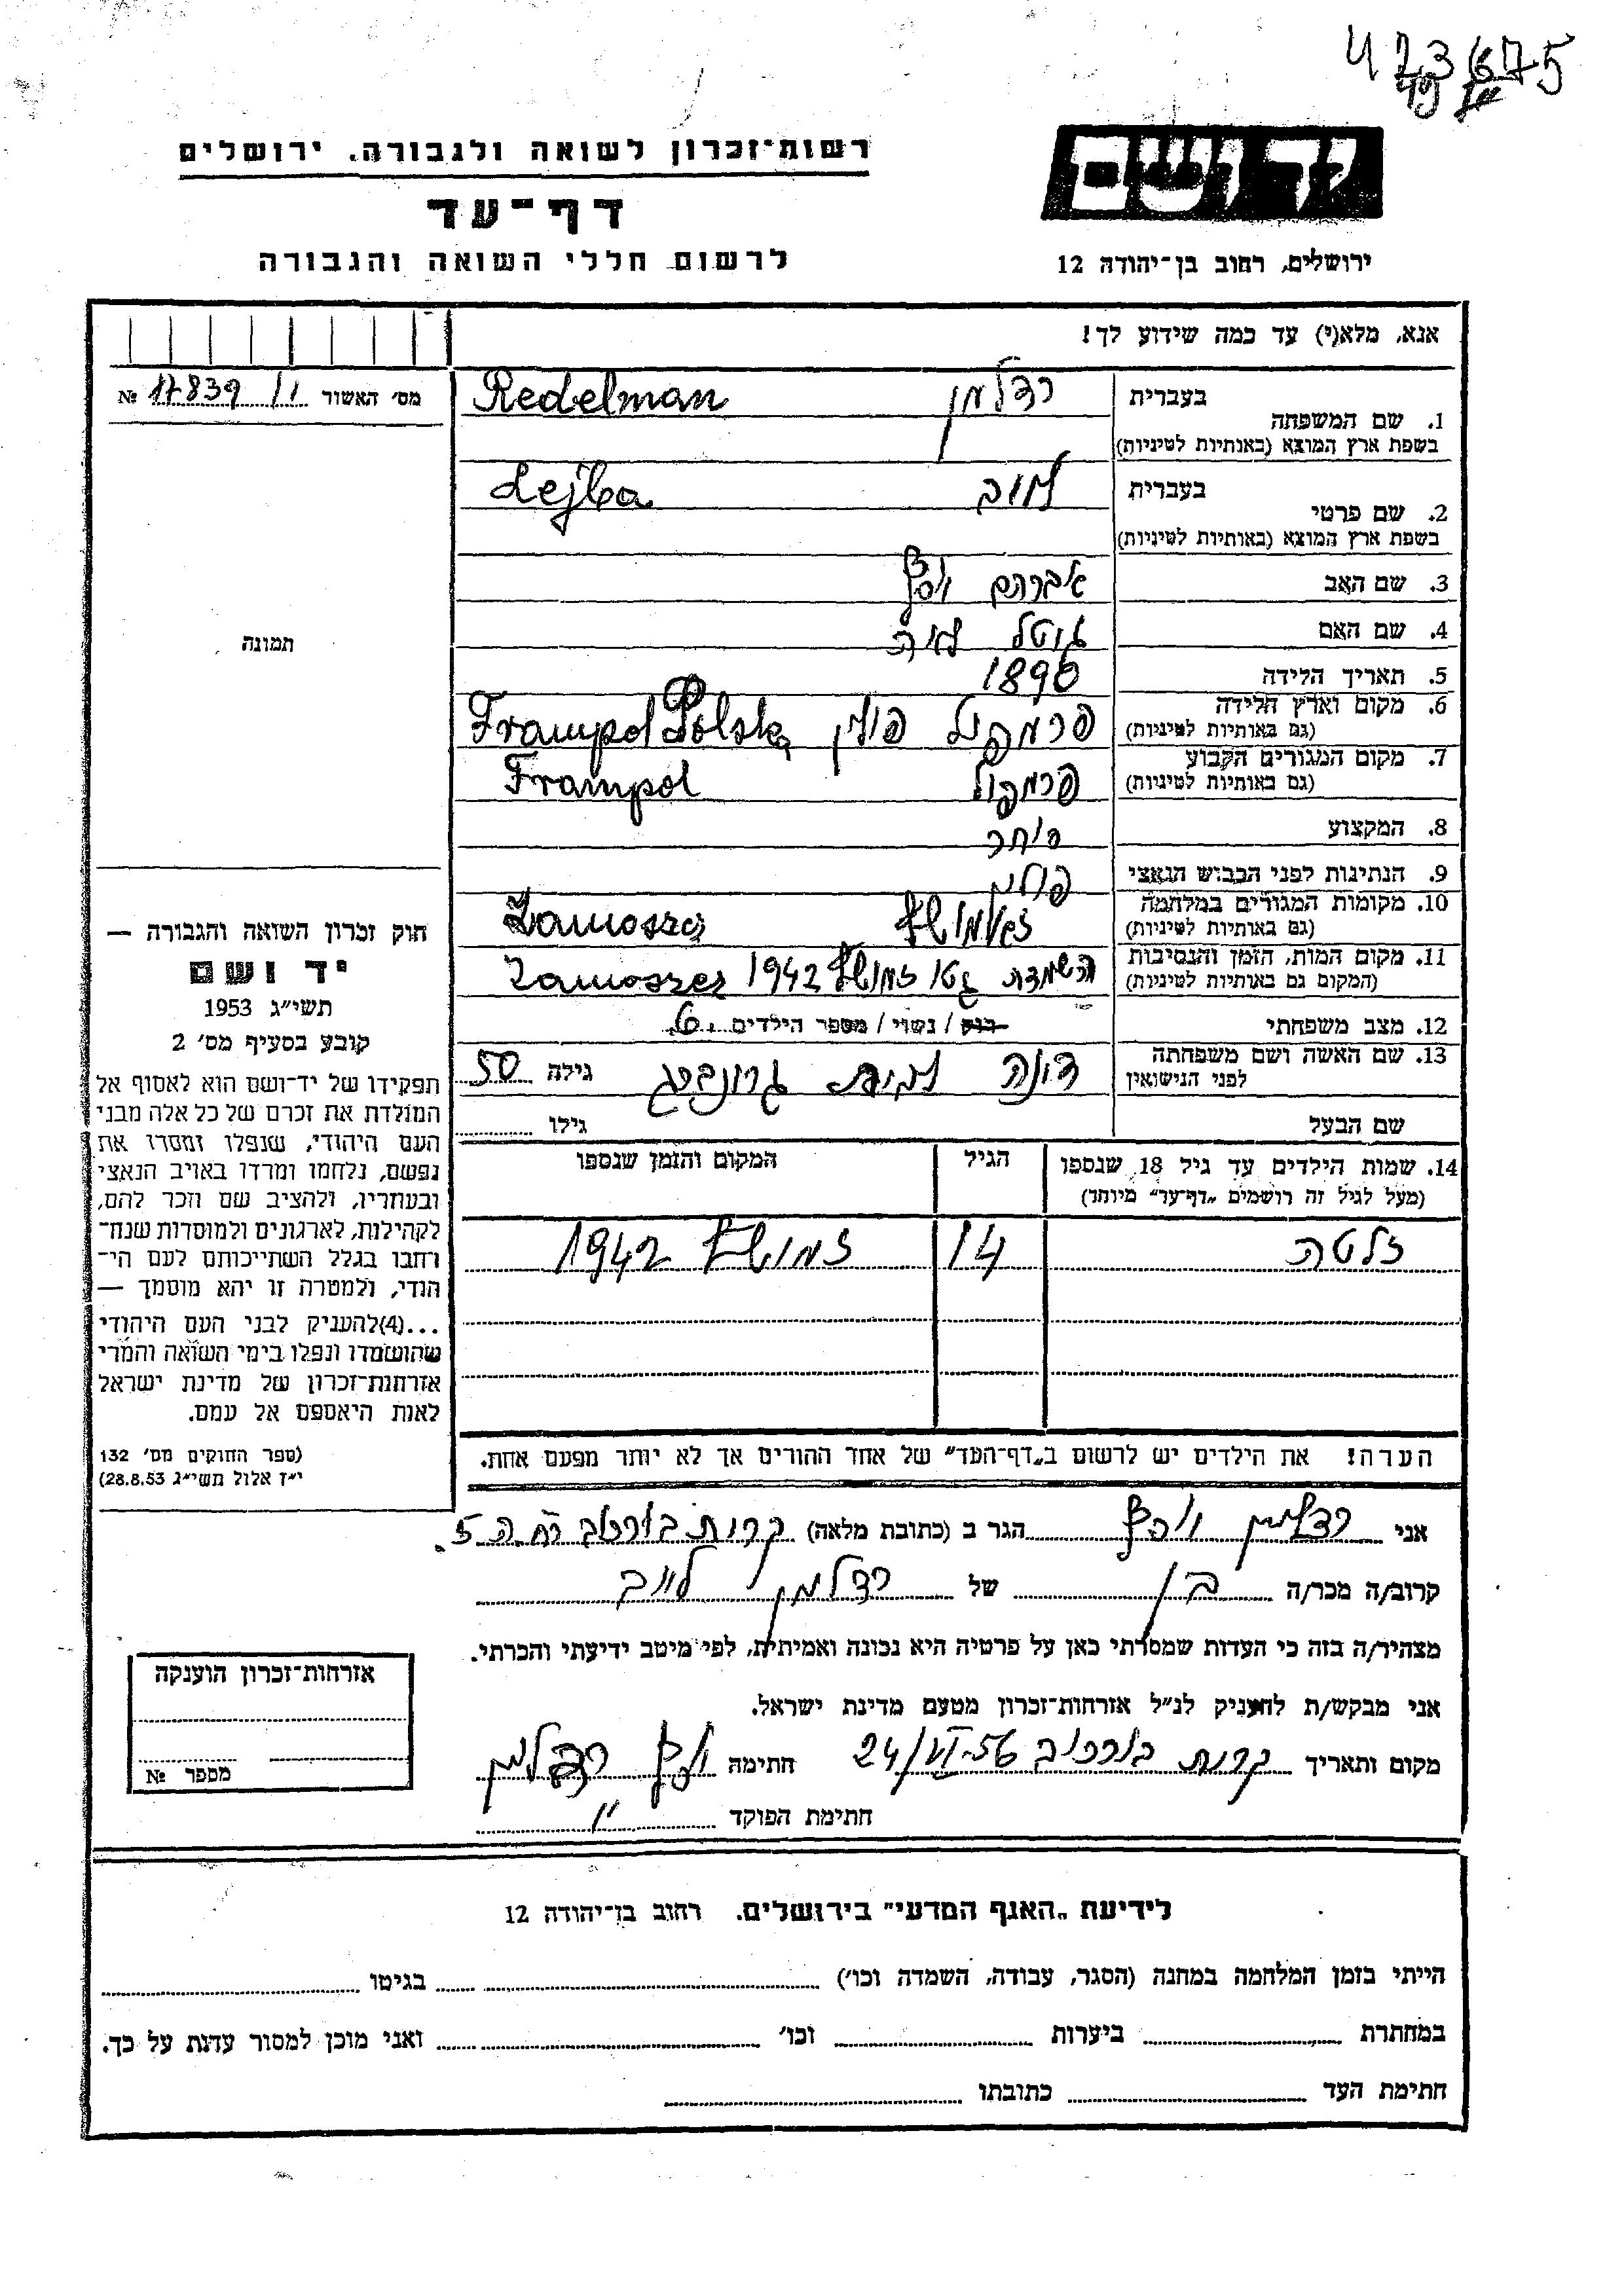 423675
49 IV
רשות־זכרון לשואה ולגבורה, ירושלים
דף־עד
לרשום חללי השואה והגבורה
ידושם
ירושלים, רחוב בן־יהודה 12
אנא, מלא(י) עד כמה שידוע לך!
מס׳ האשור 17839/1 №
בעברית רדלמן Redelman
1. שם המשפחה
בשפת ארץ המוצא (באותיות לטיניות)
בעברית לייב Lejba
2. שם פרטי
בשפת ארץ המוצא (באותיות לטיניות)
3. שם האב אברהם
4. שם האם גיטל לאה
5. תאריך הלידה 1890
6. מקום וארץ הלידה פרמפול פולין Frampol Polska
(גם באותיות לטיניות)
7. מקום המגורים הקבוע פרמפול Frampol
(גם באותיות לטיניות)
8. המקצוע סוחר
9. הנתינות לפני הכבוש הנאצי פולני
10. מקומות המגורים במלחמה Zamoszcz
(גם באותיות לטיניות)
11. מקום המות, הזמן והנסיבות השמדת גטו זמושץ 1942 Zamoszcz
(המקום גם באותיות לטיניות)
12. מצב משפחתי רוק / נשוי / מספר הילדים 6
13. שם האשה ושם משפחתה דינה לבית גרונברג גילה 50
לפני הנישואין
שם הבעל גילו
14. שמות הילדים עד גיל 18 שנספו הגיל המקום והזמן שנספו
(מעל לגיל זה רושמים „דף־עד״ מיוחד)
זלטה 14 זמושץ 1942
הערה! את הילדים יש לרשום ב„דף־העד״ של אחד ההורים אך לא יותר מפעם אחת.
תמונה
חוק זכרון השואה והגבורה —
יד ושם
תשי״ג 1953
קובע בסעיף מס׳ 2
תפקידו של יד־ושם הוא לאסוף אל
המולדת את זכרם של כל אלה מבני
העם היהודי, שנפלו ומסרו את
נפשם, נלחמו ומרדו באויב הנאצי
ובעוזריו, ולהציב שם וזכר להם,
לקהילות, לארגונים ולמוסדות שנח־
רחבו בגלל השתייכותם לעם הי־
הודי, ולמטרה זו יהא מוסמך —
...(4)להעניק לבני העם היהודי
שהושמדו ונפלו בימי השואה והמרי
אזרחות־זכרון של מדינת ישראל
לאות היאספם אל עמם.
(ספר החוקים מס׳ 132
י״ז אלול תשי״ג 28.8.53)
אני רדלמן הגר ב (כתובת מלאה) קרית בורכוב ר.ה. 5
קרוב/ה מכר/ה בן של רדלמן לייב
מצהיר/ה בזה כי העדות שמסרתי כאן על פרטיה היא נכונה ואמיתית, לפי מיטב ידיעתי והכרתי.
אני מבקש/ת להעניק לנ״ל אזרחות־זכרון מטעם מדינת ישראל.
מקום ותאריך קרית בורכוב 24/VI-56 חתימה רדלמן
חתימת הפוקד
אזרחות־זכרון הוענקה
מספר №
לידיעת „האגף המדעי״ בירושלים. רחוב בן־יהודה 12
הייתי בזמן המלחמה במחנה (הסגר, עבודה, השמדה וכו׳) בגיטו
במחתרת ביערות וכו׳ ואני מוכן למסור עדות על כך.
חתימת העד כתובתו